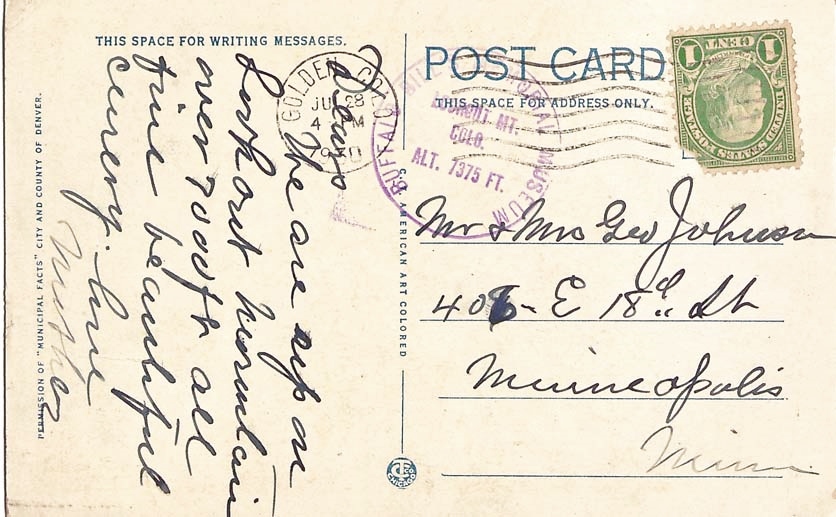 THIS SPACE FOR WRITING MESSAGES.
POST CARD
THIS SPACE FOR ADDRESS ONLY.
GOLDEN COLO.
JUL 28
4 PM
1930
BUFFALO BILL MUSEUM
LOOKOUT MT.
COLO.
ALT. 7375 FT.
ONE
1 1
UNITED STATES POSTAGE
Dears
We are up on
Lookout Mountain
over 7000 ft all
fine beautiful
cenery. love
Mother
Mr & Mrs Geo Johnson
406 - E 18th St
Minneapolis
Minn
PERMISSION OF "MUNICIPAL FACTS" CITY AND COUNTY OF DENVER.
C.T. AMERICAN ART COLORED
CT
CHICAGO